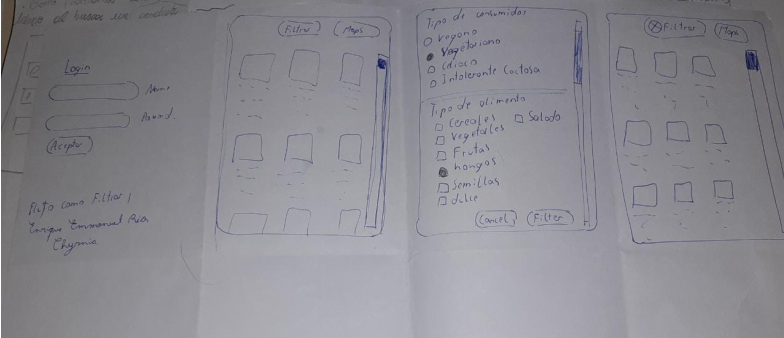 al buscar un producto
Login
Name
Aceptar
como Filtrar
Enrique Emmanuel
Filtrar Maps
Tipo de consumidor
Vegano
Vegetariano
Celiaco
Intolerante Lactosa
Tipo de alimento
Cereales Salado
Vegetales
Frutas
hongos
Semillas
dulce
Cancel Filter
Filtrar Maps